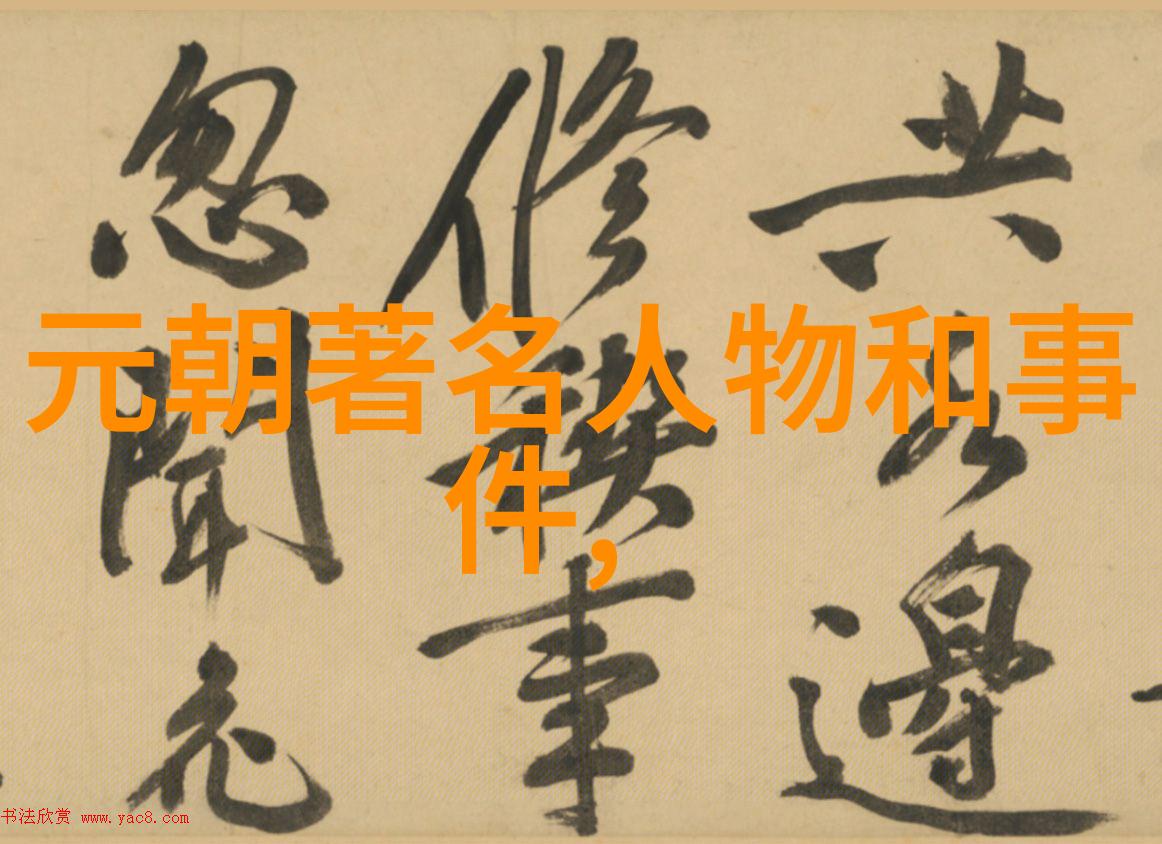 元朝著名人物和事
件,
共水邊
修禊事
忽聞
书法欣赏 www.yac8.com